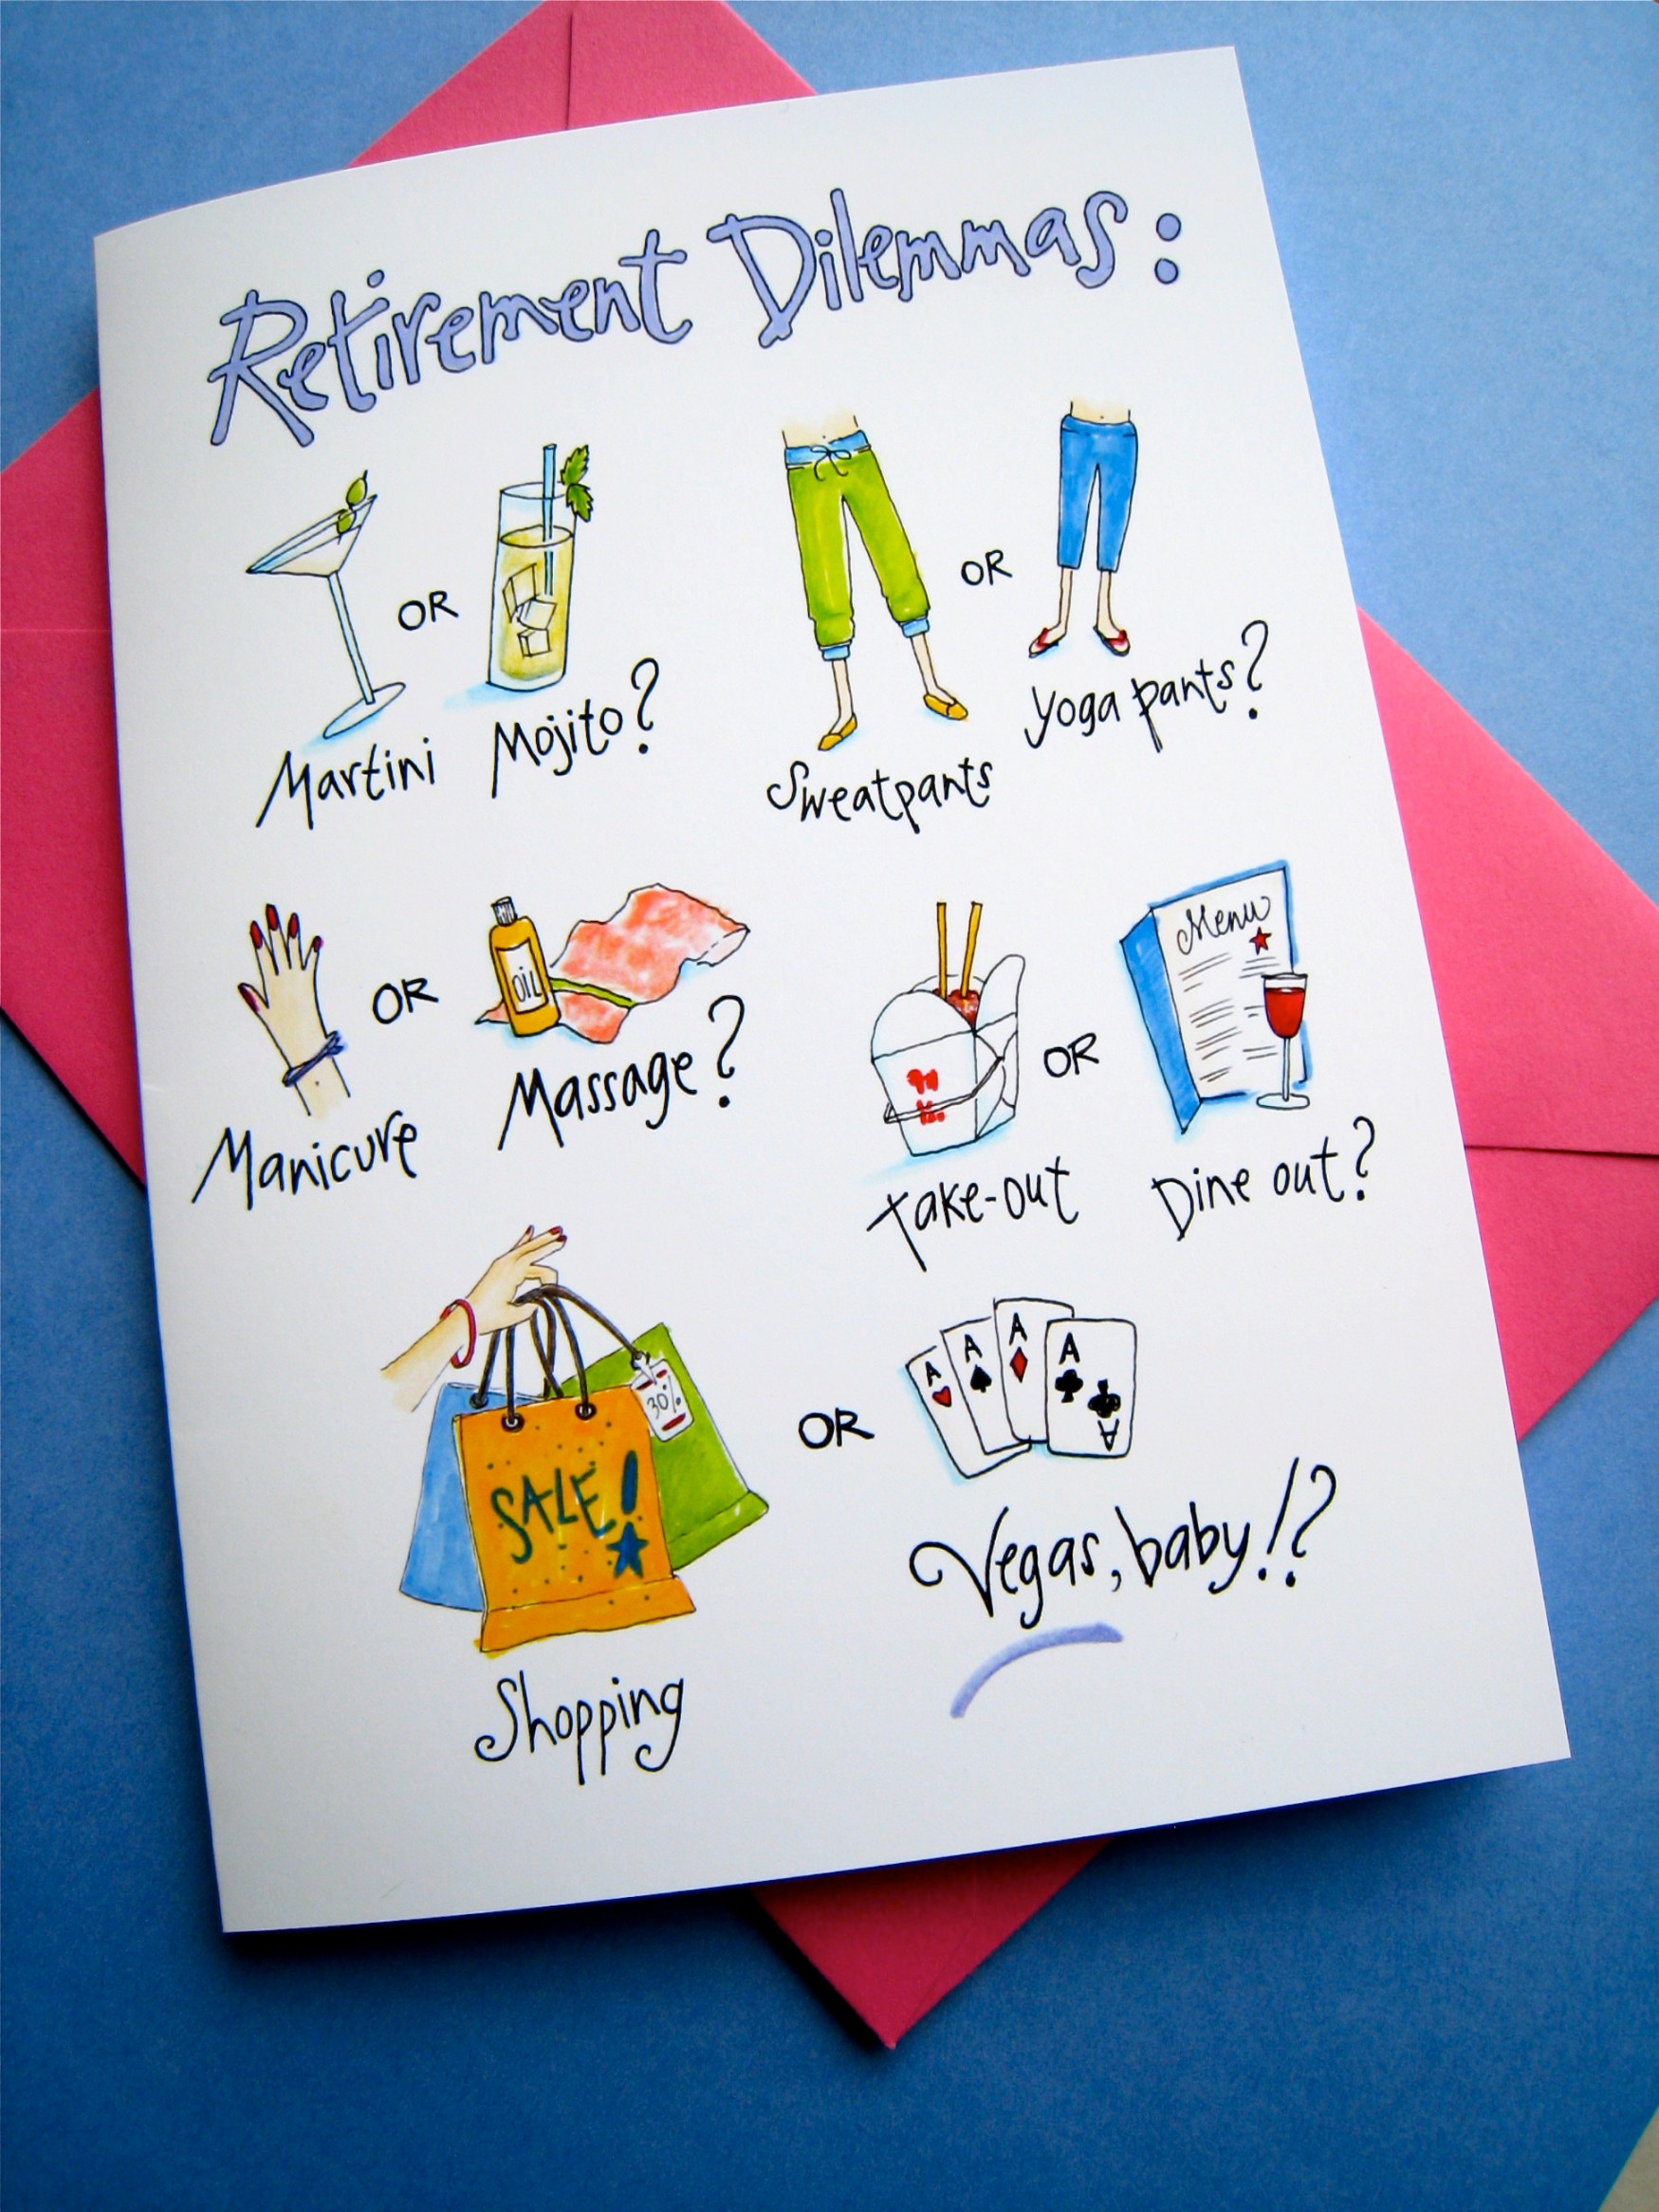 Retirement Dilemmas:
OR
Martini Mojito?
OR
Sweatpants Yoga pants?
OR
OIL
Manicure Massage?
Menu
OR
Take-out Dine out?
30%
SALE!
OR
A A A A
A
Shopping
Vegas, baby!?